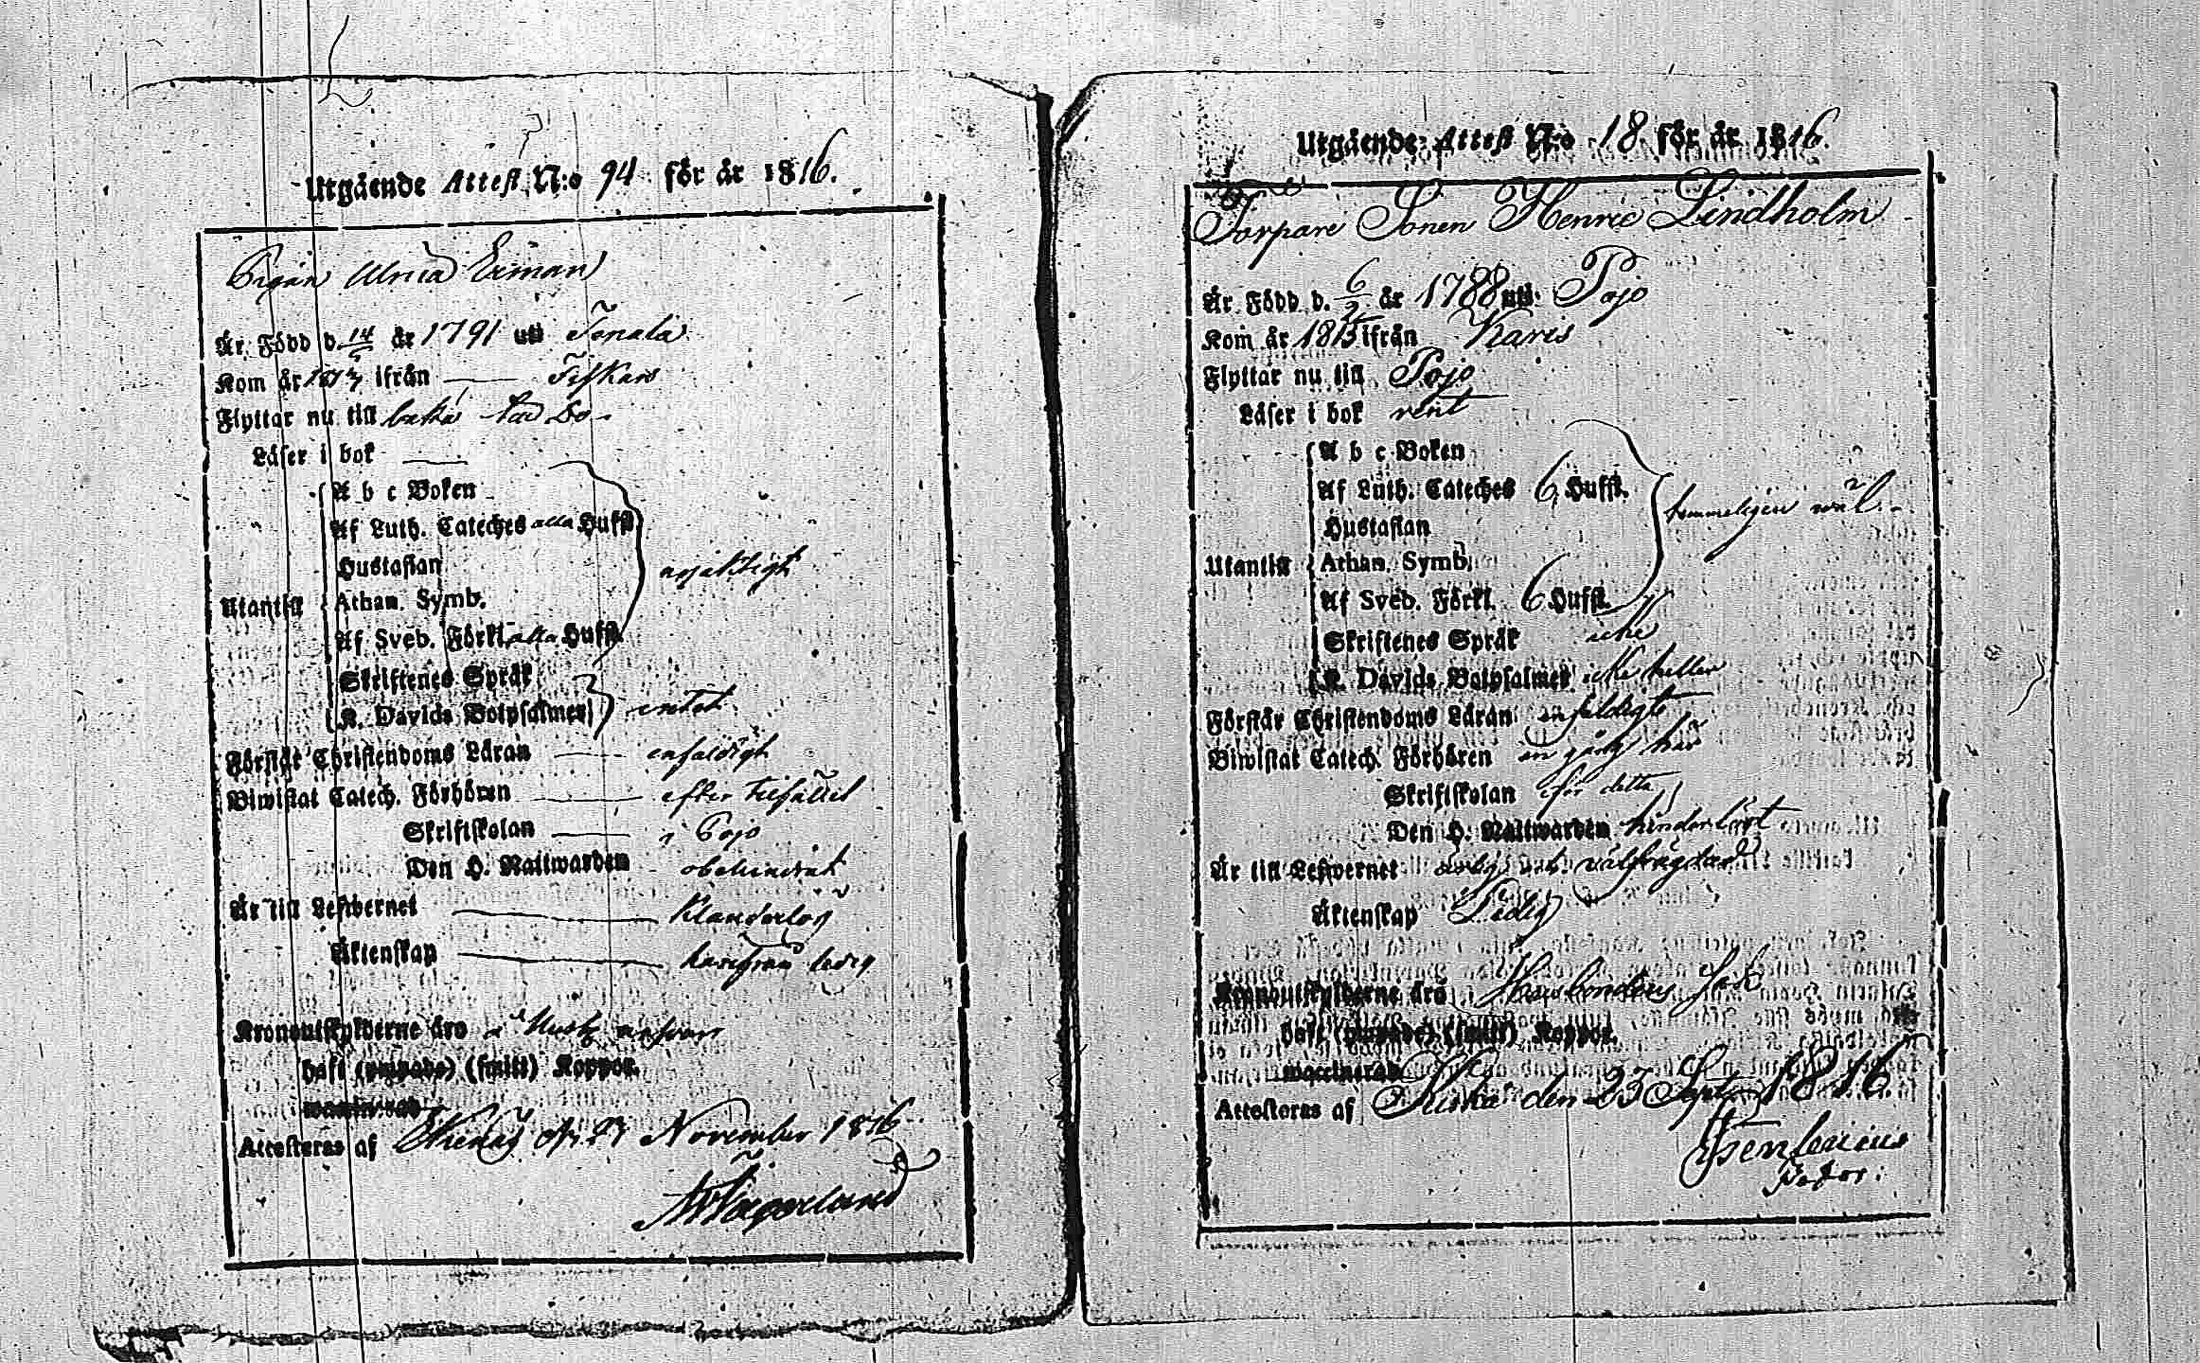 Utgående Attest N:o 94 för år 1816.
Pigan Ulrica Ekman
Är Född d. 14/5 år 1791 uti Tenala
Kom år 1813 ifrån Fiskars
Flyttar nu till baka
Läser i bok
A b c Boken
Af Luth. Cateches alla Hufst.
Hustaflan
Utantill Athan. Symb.
Af Sveb. Förkl. alla Hufst.
Skriftenes Språk
K. Davids Botpsalmer intet
Förstår Christendoms Läran enfaldigt
Biwistat Catech. Förhören efter tilfället
Skriftskolan i Pojo
Den H. Nattwarden obehindrat
Är till Lefwernet Klanderlös
Äktenskap ledig
Kronoutskylderne äro
haft (ympade) (smitt) Koppor.
waccinerad
Attesteras af Ekenäs d. 27 November 1816
Utgående Attest N:o 18 för år 1816.
Torpare Sonen Henric Lindholm
Är Född d. 6/2 år 1788 uti Pojo
Kom år 1815 ifrån Karis
Flyttar nu till Pojo
Läser i bok rent
A b c Boken
Af Luth. Cateches 6 Hufst.
Hustaflan temmeligen wäl.
Utantill Athan. Symb.
Af Sveb. Förkl. 6 Hufst.
Skriftenes Språk icke
K. Davids Botpsalmer icke heller
Förstår Christendoms Läran enfaldigt
Biwistat Catech. Förhören en gång här
Skriftskolan för detta
Den H. Nattwarden hinderlöst
Är till Lefwernet ärlig och välfrägdad
Äktenskap Ledig
Kronoutskylderne äro Husbondens sak
haft (ympade) (smitt) Koppor.
waccinerad
Attesteras af den 23 Sept. 1816.
Pastor.